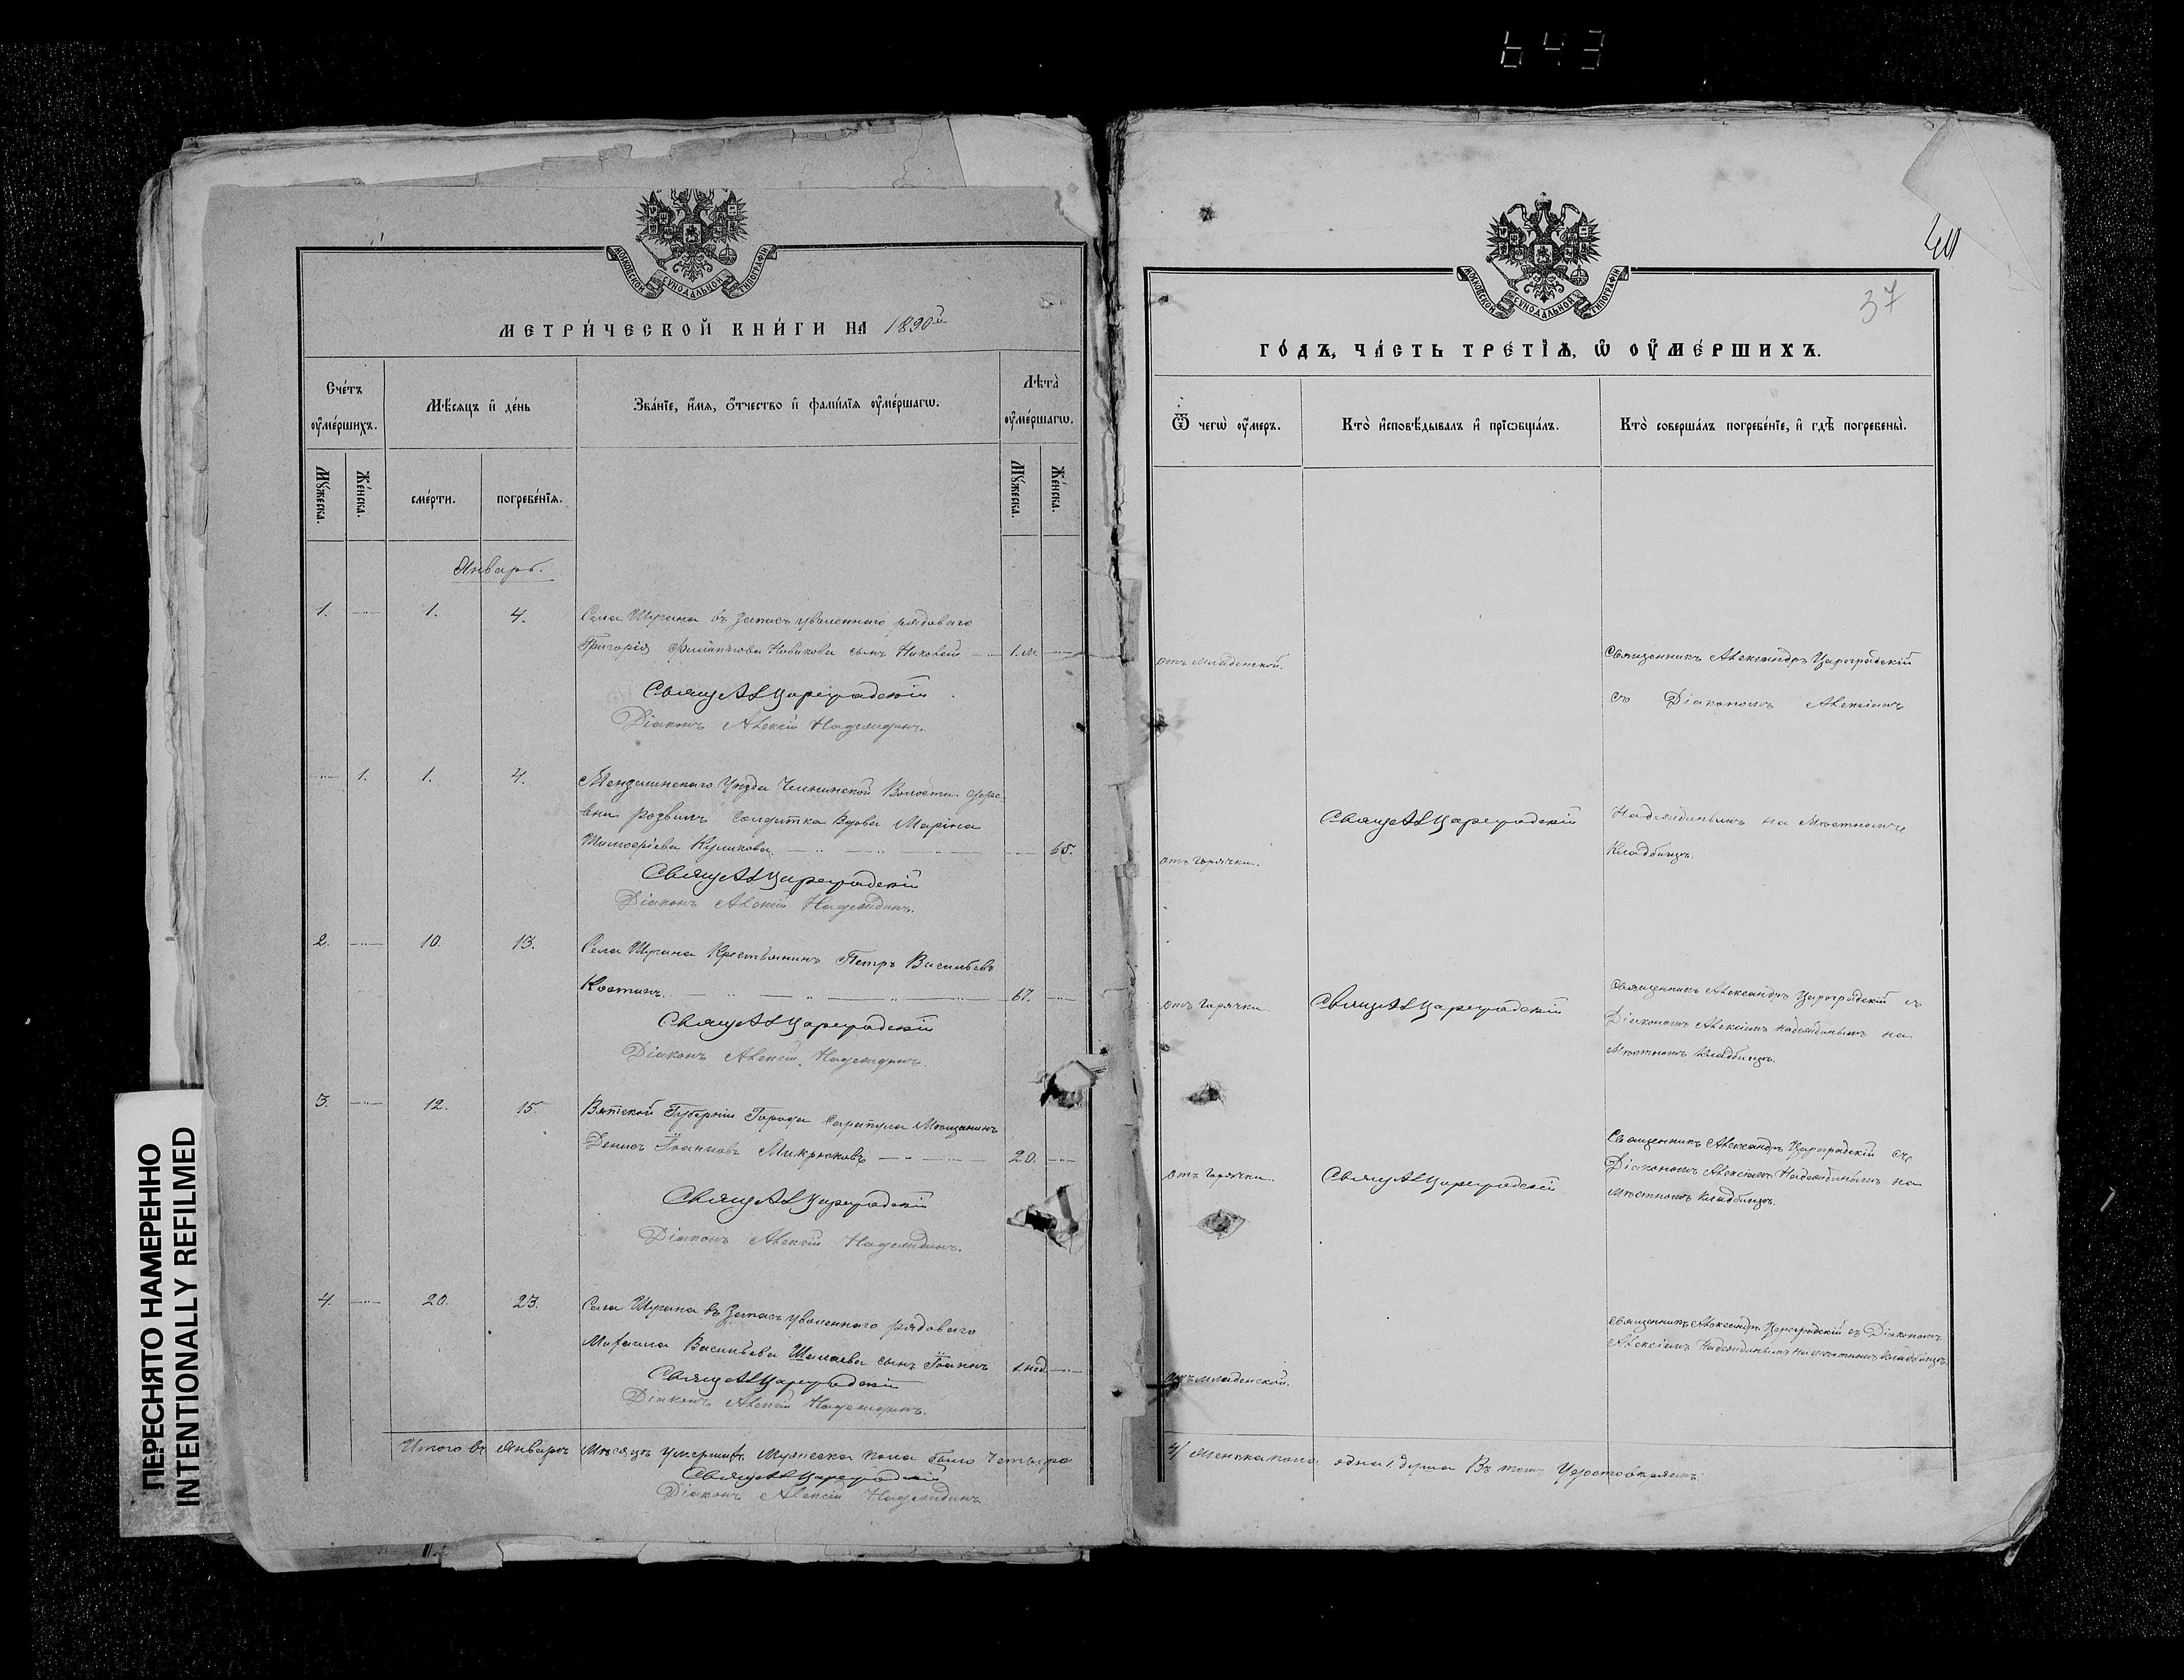 643
МОСКОВСКОЙ СУНОДАЛЬНОЙ ТИПОГРАФІИ
МЕТРИ́ЧЕСКОЙ КНИ́ГИ НА 1890й
Сче́тъ ᲂу҆ме́ршихъ.
Мѣ́сяцъ и҆ де́нь
Зва́нїе, и҆́мя, ѻ҆́тчество и҆ фамѝлїя ᲂу҆ме́ршагѡ.
Лѣта̀ ᲂу҆ме́ршагѡ.
Мꙋ́жеска.
Же́нска.
сме́рти.
погребе́нїя.
Мꙋ́жеска.
Же́нска.
Январь.
1.
1.
4.
Села Шугана въ запасъ уволеннаго рядоваго
Григорія Филиппова Новикова сынъ
1. м.
Свящ Ал Цареградскій
Діаконъ Алексій Надеждинъ.
1.
1.
4.
Мензелинскаго Уѣзда Волости дере-
вни солдатка вдова Марина
Тимоѳеева Куликова.
65.
Свящ Ал Цареградскій
Діаконъ Алексій Надеждинъ.
2.
10.
13.
Села Шугана Крестьянинъ Петръ Васильевъ
Костинъ.
67.
Свящ Ал Цареградскій
Діаконъ Алексій Надеждинъ.
3.
12.
15.
Вятской Губерніи Города Сарапула Мѣщанинъ
Денисъ Іоанновъ Микрюковъ
20.
Свящ Ал Цареградскій
Діаконъ Алексій Надеждинъ.
4.
20.
23.
Села Шугана въ запасъ уволеннаго рядоваго
Михаила Васильева Шалаева сынъ Іоаннъ
1. нед.
Свящ Ал Цареградскій
Діаконъ Алексій Надеждинъ.
Итого въ Январѣ Мѣсяцѣ умершихъ Мужеска пола было четыре
Свящ Ал Цареградскій
Діаконъ Алексій Надеждинъ.
37
МОСКОВСКОЙ СУНОДАЛЬНОЙ ТИПОГРАФІИ
ГО́ДЪ, ЧА́СТЬ ТРЕ́ТЇѦ, Ѡ҆ ОУ҆МЕ́РШИХЪ.
Ѿ чегѡ̀ ᲂу҆́меръ.
Кто̀ и҆сповѣ́дывалъ и҆ прїѡбща́лъ.
Кто̀ соверша́лъ погребе́нїе, и҆ гдѣ̀ погребены̀.
отъ младенской.
Священникъ Александръ Цареградскій
съ Діакономъ Алексіемъ
отъ горячки.
Свящ Ал Цареградскій
Надеждинымъ на мѣстномъ
кладбищѣ.
отъ горячки.
Свящ Ал Цареградскій
Священникъ Александръ Цареградскій съ
Діакономъ Алексіемъ Надеждинымъ на
мѣстномъ кладбищѣ.
отъ горячки.
Свящ Ал Цареградскій
Священникъ Александръ Цареградскій съ
Діакономъ Алексіемъ Надеждинымъ на
мѣстномъ кладбищѣ.
отъ младенской.
Священникъ Александръ Цареградскій съ Діакономъ
Алексіемъ Надеждинымъ на мѣстномъ кладбищѣ.
4/ женска пола одна 1 душа въ томъ удостовѣряемъ:
ПЕРЕСНЯТО НАМЕРЕННО
INTENTIONALLY REFILMED